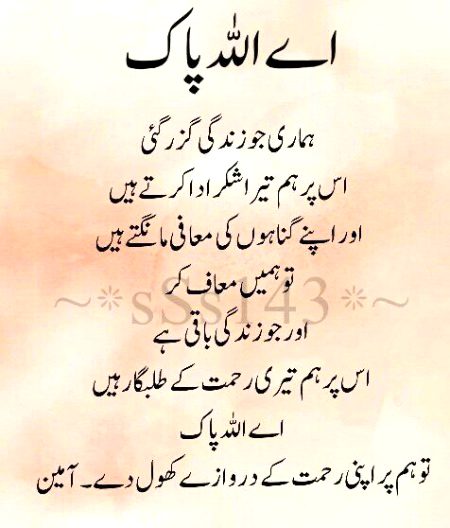 اے اللہ پاک
ہماری جو زندگی گزر گئی
اس پر ہم تیرا شکر ادا کرتے ہیں
اور اپنے گناہوں کی معافی مانگتے ہیں
تو ہمیں معاف کر
~*sSs143*~
اور جو زندگی باقی ہے
اس پر ہم تیری رحمت کے طلبگار ہیں
اے اللہ پاک
تو ہم پر اپنی رحمت کے دروازے کھول دے۔ آمین